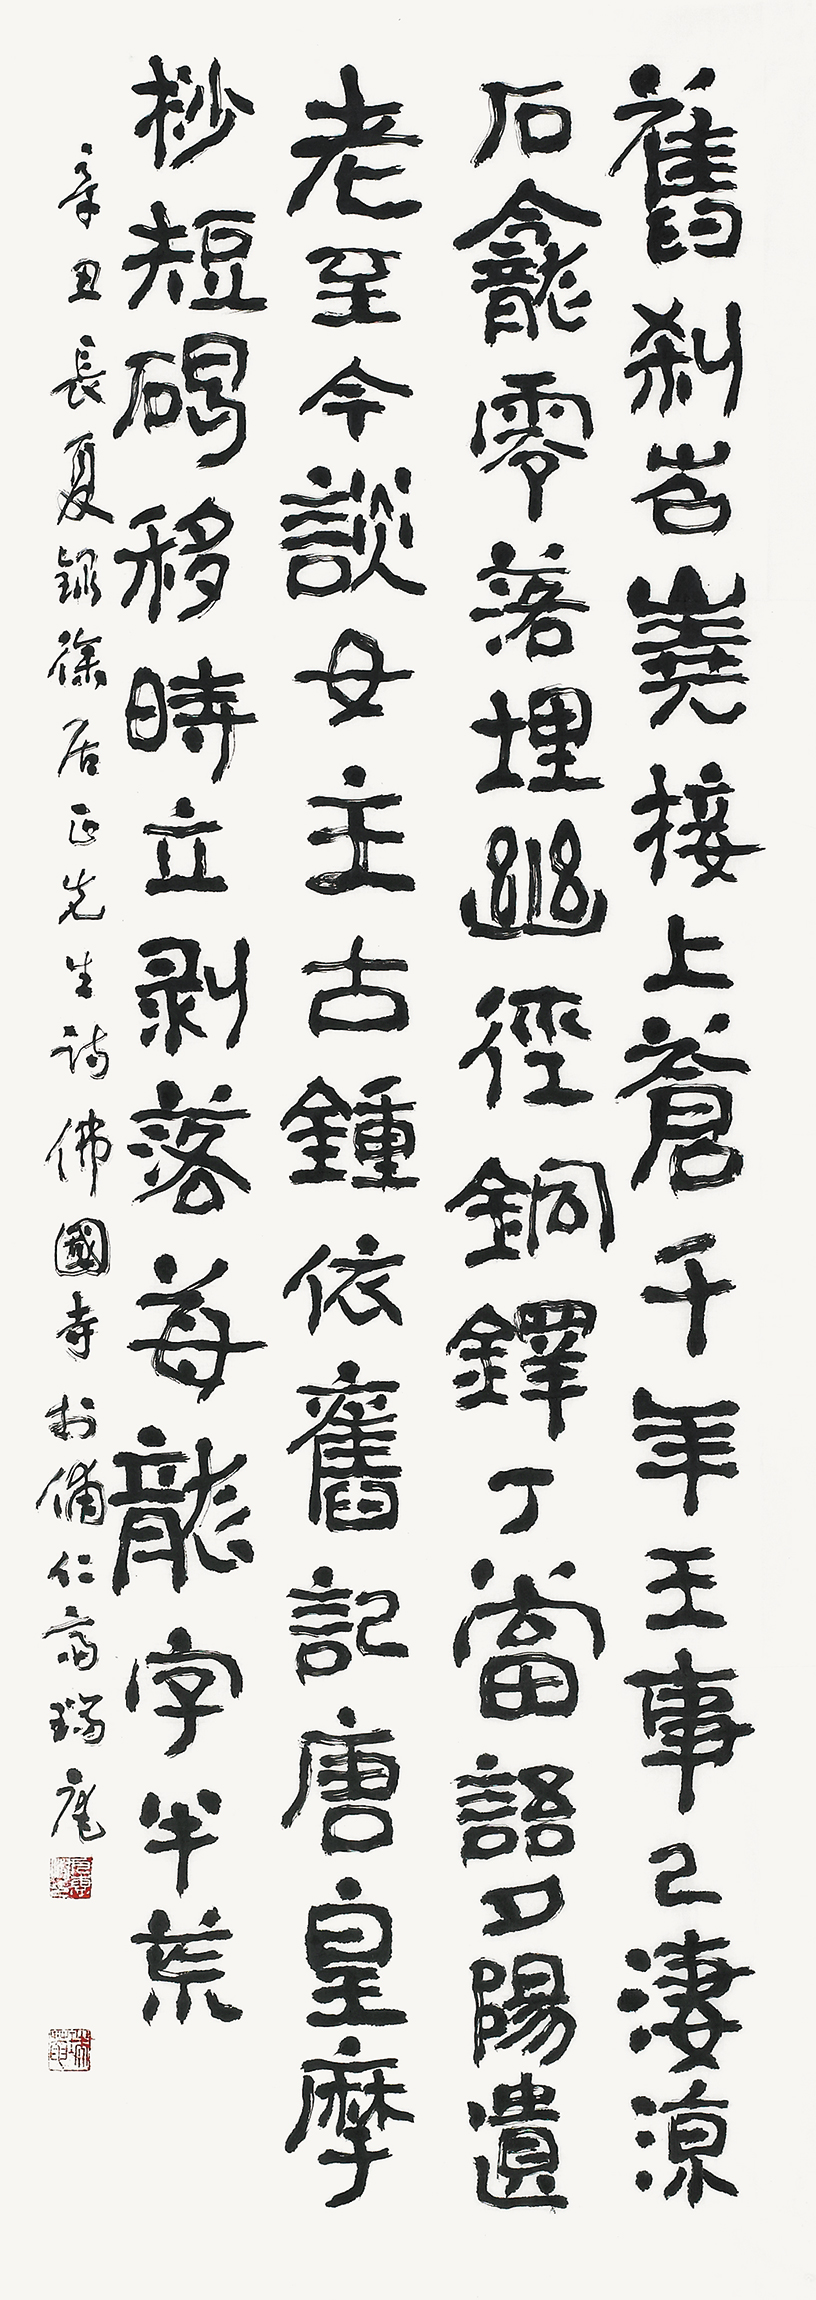 舊刹岧嶢接上蒼千年王事已淒涼
石龕零落埋幽徑銅鐸丁當語夕陽遺
老至今談女主古鍾依舊記唐皇摩
挱短碣移時立剥落莓龍字半荒
辛丑長夏錄徐居正先生詩佛國寺於備仁齋瑞庵